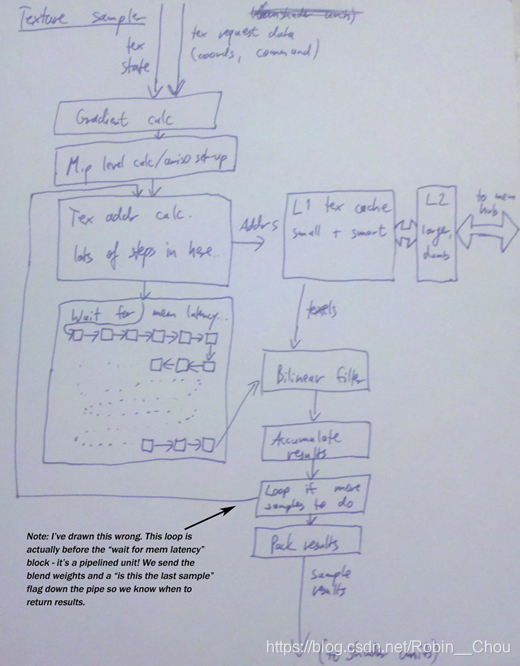 Texture sampler
(to shader units)
tex state
tex request data
(coords, command)
Gradient calc
Mip level calc/aniso set-up
Tex addr calc.
lots of steps in here..
Addrs
L1 tex cache
small + smart
L2
larger,
dumb
to mem
hub
Wait for mem latency..
texels
Bilinear filter
Accumulate
results
Loop if more
samples to do
Pack results
Note: I've drawn this wrong. This loop is
actually before the "wait for mem latency"
block - it's a pipelined unit! We send the
blend weights and a "is this the last sample"
flag down the pipe so we know when to
return results.
sample
results
(to shader units)
https://blog.csdn.net/Robin__Chou